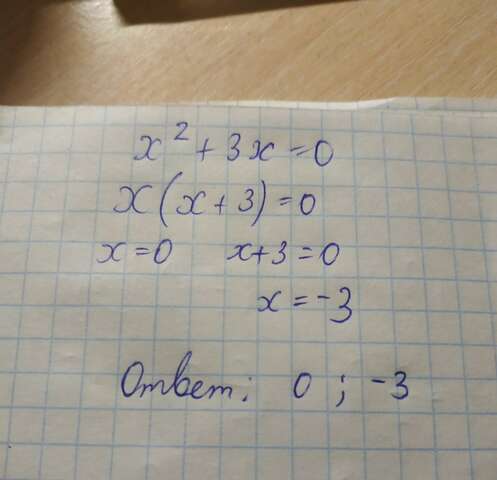 x² + 3x = 0
x(x + 3) = 0
x = 0 x + 3 = 0
x = -3
Ответ: 0 ; -3